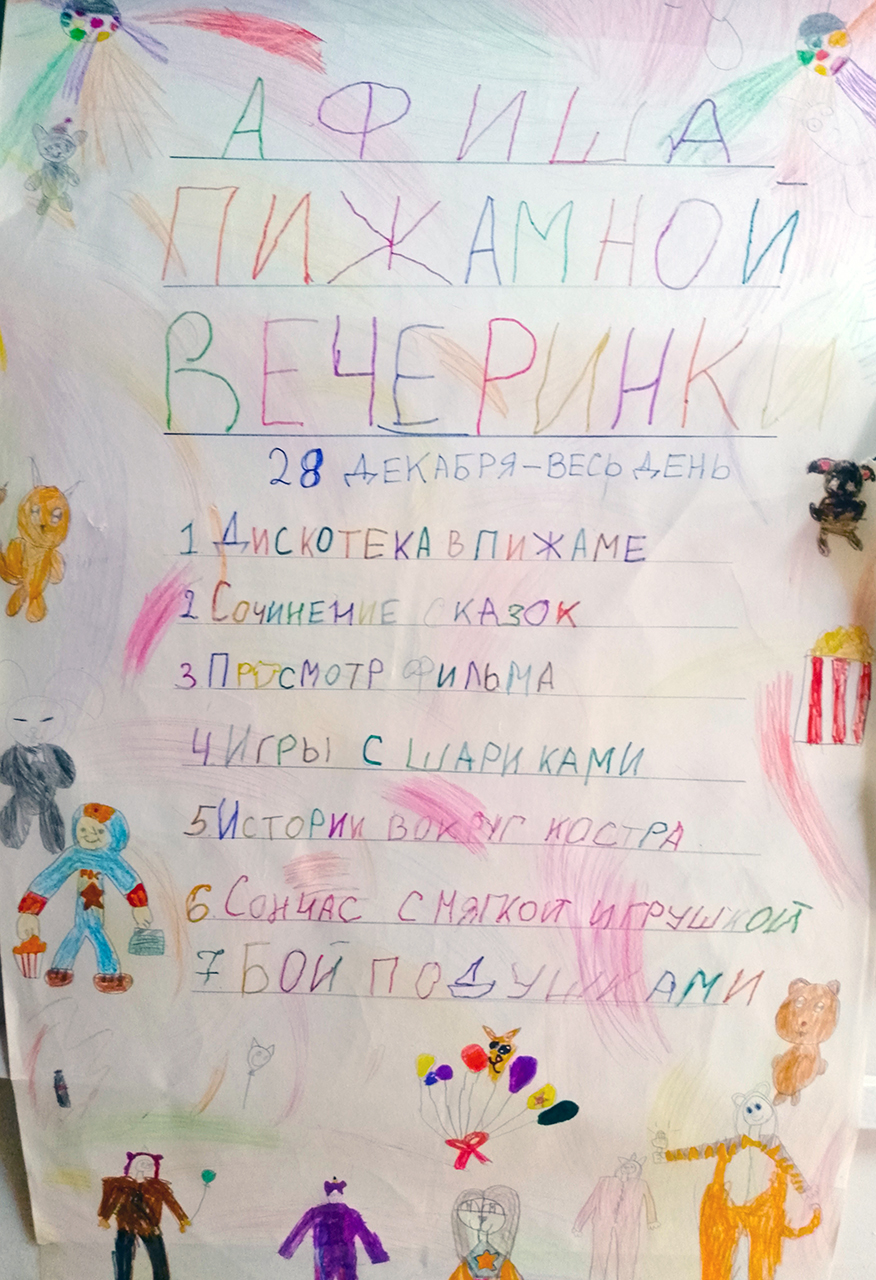 АФИША
ПИЖАМНОЙ
ВЕЧЕРИНКИ
28 ДЕКАБРЯ-ВЕСЬ ДЕНЬ
1 ДИСКОТЕКА В ПИЖАМЕ
2 СОЧИНЕНИЕ СКАЗОК
3 ПРОСМОТР ФИЛЬМА
4 ИГРЫ С ШАРИКАМИ
5 ИСТОРИИ ВОКРУГ КОСТРА
6 СОНЧАС С МЯГКОЙ ИГРУШКОЙ
7 БОЙ ПОДУШКАМИ